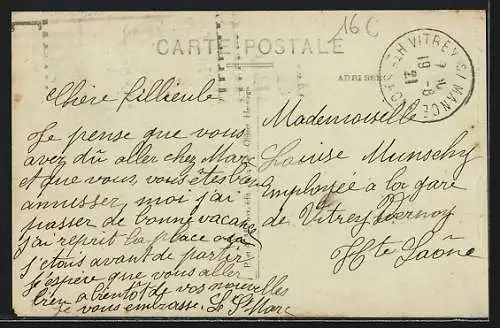 16 C
CARTE POSTALE
ADRESSE
VITREY S/ MANCE
19 - 8
21
Chère filleule
Je pense que vous
avez dû aller chez Marc
et que vous, vous êtes bien
amusser, moi j'ai
passer de bonne vacances
j'ai reprit la place
j'étais avant de partir
j'espère que vous aller
bien a bientôt de vos nouvelles
je vous embrasse. Le St Marc
Mademoiselle
Louise Munschy
Employée a la gare
de Vitrey Vernoy
Hte Saône